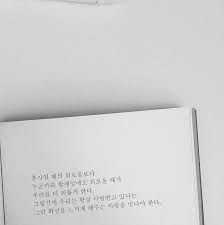 혼자일 때의 외로움보다
누군가와 함께임에도 외로울 때가
우리를 더 외롭게 한다.
그렇기에 우리는 항상 사랑받고 있다는
그런 확신을 느끼게 해주는 사람을 만나야 한다.